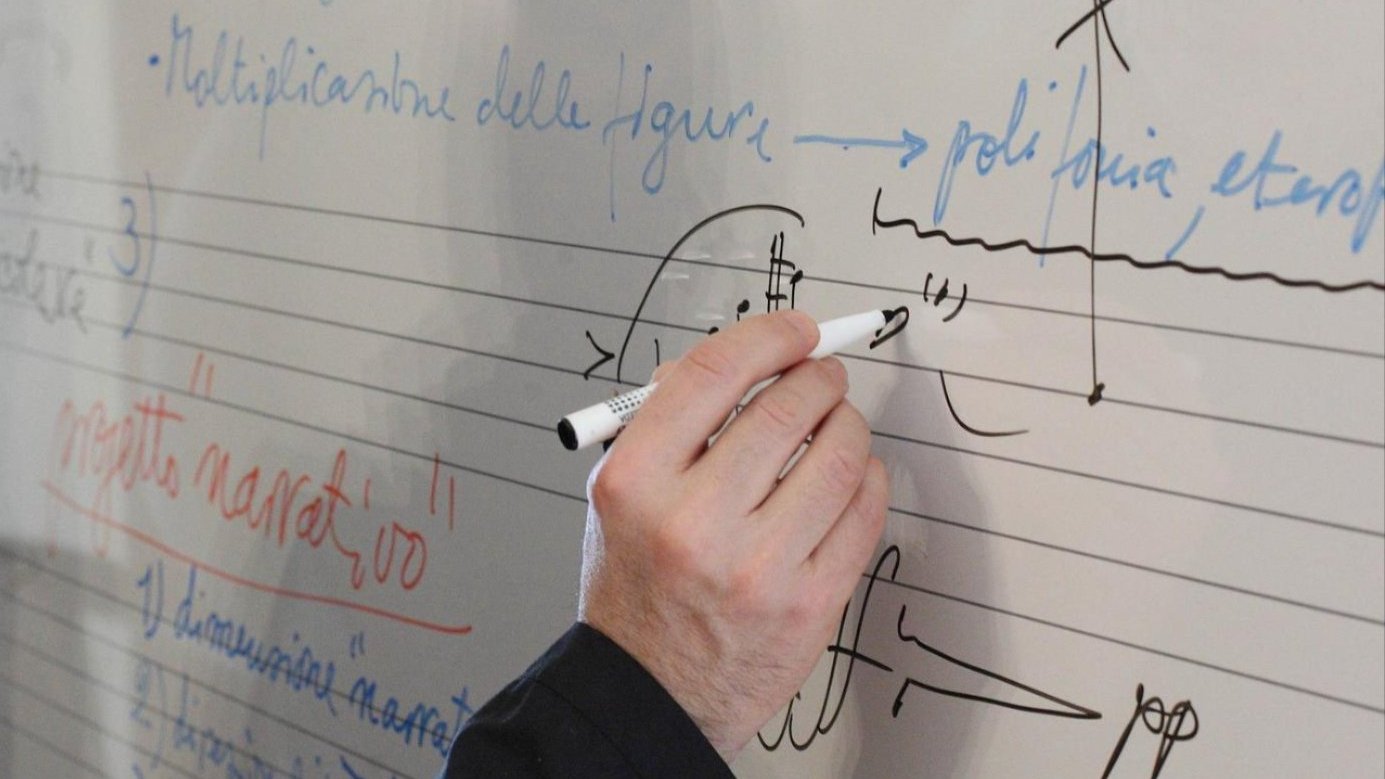 • Moltiplicazione delle figure → polifonia, eterof
3)
"progetto narrativo"
1) dimensione "narrat
2)
pp